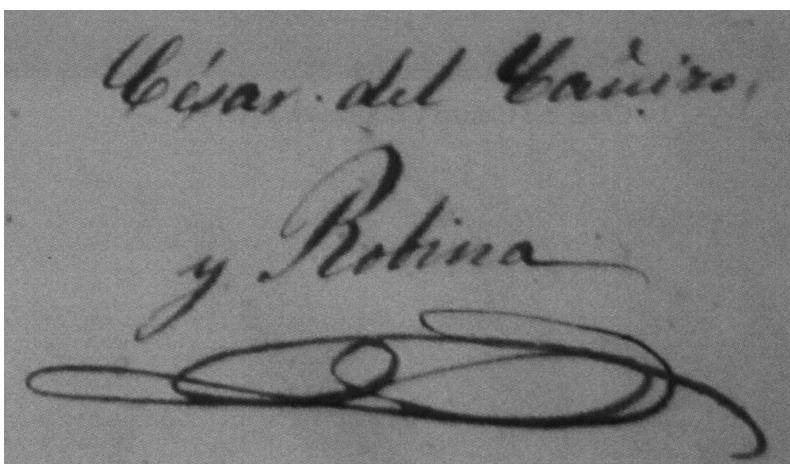 César del Cañizo,
y Robina